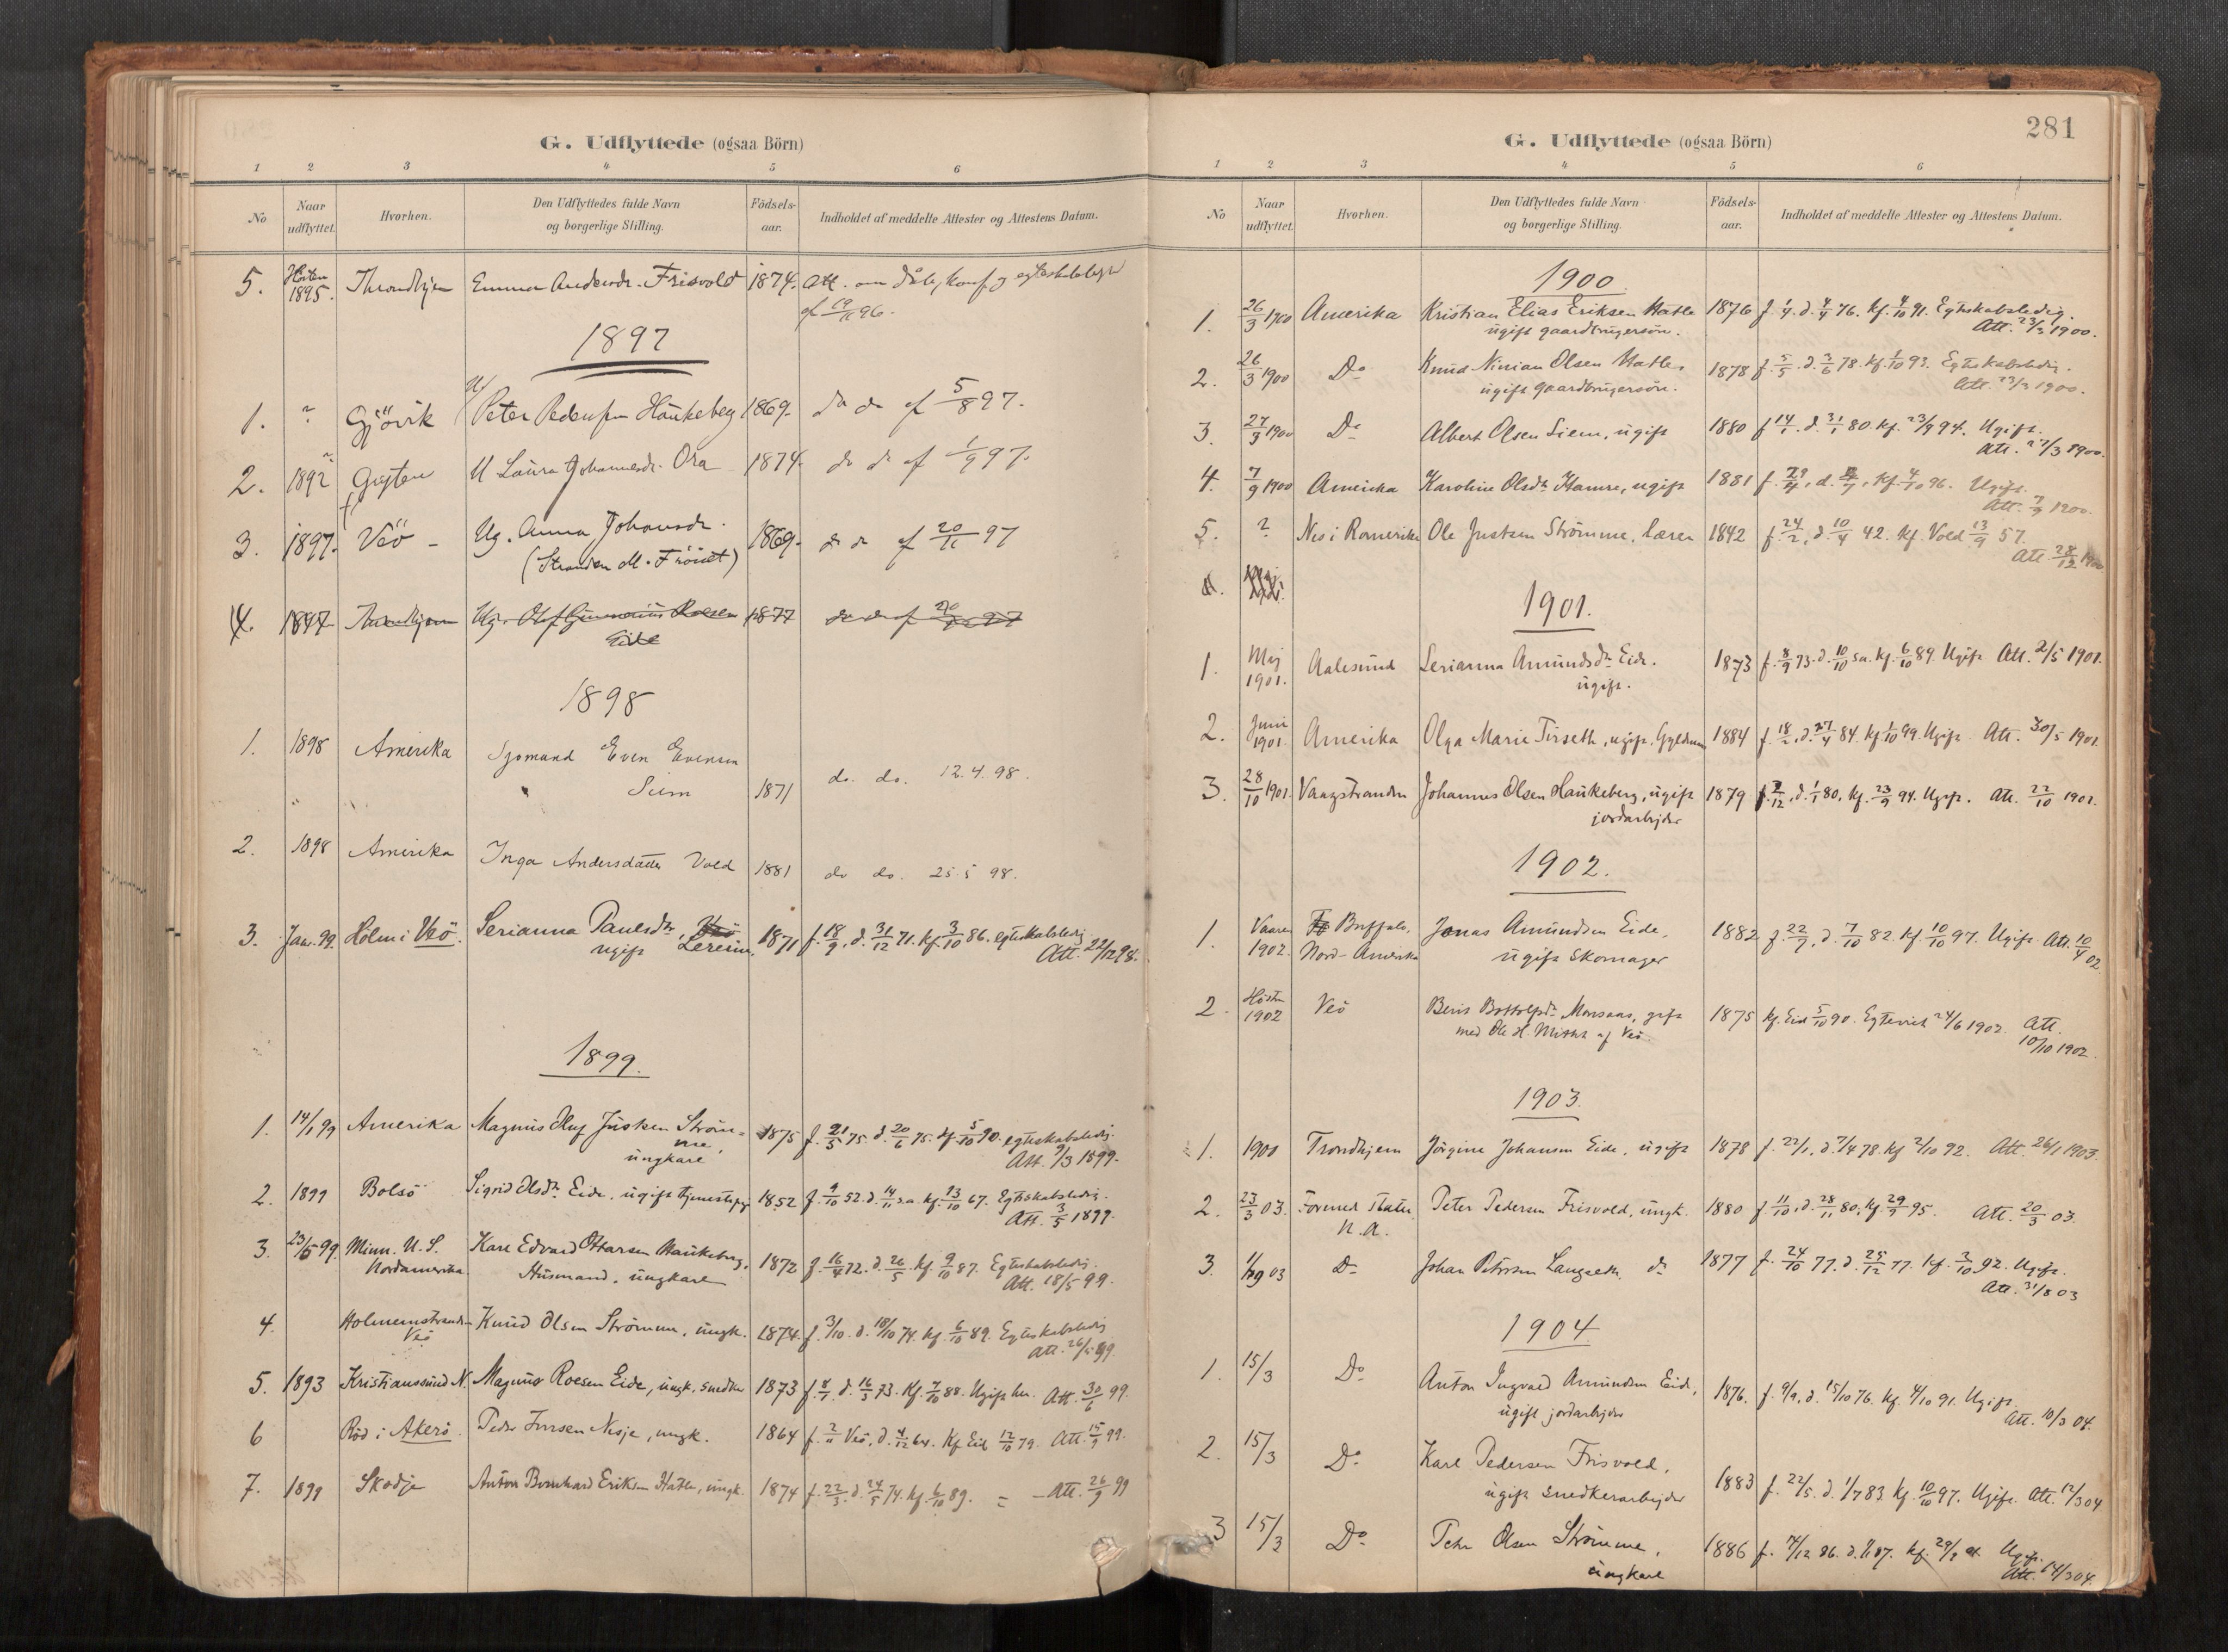 G. Udflyttede (ogsaa Börn)
1 2 3 4 5 6
No
Naar udflyttet.
Hvorhen.
Den Udflyttedes fulde Navn og borgerlige Stilling.
Födsels-aar.
Indholdet af meddelte Attester og Attestens Datum.
5. Hösten 1895. Throndhjem Emma Andersdr. Frisvold 1874. Att. om Dåb, konf. og
1897
1. ? Gjövik Peter Pedersen Haukeberg 1869. do do af 5/8 97.
2. 1897 U Laura Johannesdr. Ora 1874. do do af 1/9 97.
3. 1897. Veö - Ug. Anna Johansdr. 1869. do do af 20/11 97
4. 1897 Throndhjem Ug. Olof Roesen 1877 do do af
Eide
1898
1. 1898 Amerika Even Evensen
Siem 1871 do. do. 12.4.98.
2. 1898 Amerika Inga Andersdatter Vold 1881 do do. 25 5 98.
3. Jan. 99. Holm i Veö. Serianna Paulsdr, 1871 f. 18/9, d. 31/12 71. kf. 3/10 86. egteskabsledig.
ugift Lereim. Att. 22/12 98.
1899.
1. 14/1 99 Amerika Magnus Oluf Justsen Ström= 1875 f. 21/5 75 d. 20/6 75. kf. 5/10 90. egteskabsledig.
me
ungkarl Att. 9/3 1899.
2. 1899 Bolsö Sigrid Olsdr Eide, ugift 1852 f. 9/10 52. d. 14/11 s.a. kf. 13/10 67. Egteskabsledig.
Att. 3/5 1899.
3. 23/5 99. Minn. U.S. Kare Edvard Ottarsen Haukeberg, 1872 f. 16/4 72. d. 26/5. kf. 9/10 87. Egteskabsledig.
Nordamerika Husmand, ungkarl Att. 18/5 99.
4. Holmemstranden Knud Olsen Strömme, ungk. 1874. f. 3/10. d. 18/10 74. kf. 6/10 89. Egteskabsledig
Veö
5. 1893 Kristianssund N. Magnus Roesen Eide, ungk. snedker 1873 f. 8/1. d. 16/3 73. Kf. 7/10 88. Ugift her. Att. 30/6 99.
6 Röd i Akerö. Peder Iversen Nesje, ungk. 1864 f. 2/11 Veö, d. 4/12 64. Kf Eid 12/10 79. Att. 15/9 99.
7. 1899 Skodje Anton Bernhard Eriksen Hatle, ungk. 1874 f. 22/3. d. 24/5 74. kf. 6/10 89. = - Att. 26/9 99
281
G. Udflyttede (ogsaa Börn)
1 2 3 4 5 6
No
Naar udflyttet.
Hvorhen.
Den Udflyttedes fulde Navn og borgerlige Stilling.
Födsels-aar.
Indholdet af meddelte Attester og Attestens Datum.
1900.
1. 26/3 1900 Amerika Kristian Elias Eriksen Hatle 1876 f. 1/4. d. 4/4 76. Kf. 4/10 91. Egteskabsledig.
ugift gaardbrugersön. Att. 23/3 1900.
2. 26/3 1900 Do Knud Ninian Olsen Hatle, 1878 f. 5/5. d. 3/6 78. kf. 1/10 93. Egteskabsledig.
ugift gaardbrugersön. Att. 23/3 1900.
3. 27/3 1900 Do Albert Olsen Siem, ugift 1880 f. 14/1. d. 31/1 80. kf. 23/9 94. Ugift.
Att. 27/3 1900.
4. 7/9 1900 Amerika Karoline Olsdr Hamre, ugift 1881 kf. 4/10 96. Ugift.
Att. 7/9 1900.
5. ? Nes i Romerike Ole Justsen Strömme, lærer 1842 f. 24/2, d. 10/4 42. Kf. Vold 13/9 57.
Att. 28/12 1900
1901.
1. Maj 1901. Aalesund Serianna Amundsdr Eide. 1873 f. 8/9 73. d. 10/10 s.a. kf. 6/10 89. Ugift Att. 2/5 1901.
ugift.
2. Juni 1901 Amerika Olga Marie Tirseth, ugift, 1884 f. 18/2, d. 27/4 84. kf. 1/10 99. Ugift Att. 30/5 1901.
3. 28/10 1901. Vaagstranden Johannes Olsen Haukeberg, ugift 1879 f. 7/12, d. 1/1 80, kf. 23/9 94. Ugift. Att. 22/10 1901.
jordarbejder
1902.
1. Vaaren 1902. Buffalo, Jonas Amundsen Eide, 1882 f. 22/7, d. 7/10 82. kf. 10/10 97. Ugift Att. 10/4 02.
Nord-Amerika ugift Skomager
2. Hösten 1902 Veö Beris Bottolfsdr Monsaas, gift 1875 kf. Eid 5/10 90. Egteviet 24/6 1902. Att.
med Ole H. af Veö. 10/10 1902.
1903.
1. 1900 Trondhjem Jörgine Johansen Eide, ugift 1878 f. 22/1, d. 7/4 78. kf. 2/10 92. Att. 26/1 1903.
2. 23/3 03. Forened Stater Peter Pedersen Frisvold, ungk. 1880 f. 11/10, d. 28/11 80, kf. 29/9 95. Att. 20/3 03.
N.A.
3. 1/9 03 Do Johan Petersen Langseth, do 1877 f. 24/10 77. d. 25/12 77. kf. 3/10 92. Ugift.
Att. 31/8 03
1904
1. 15/3 Do Anton Ingvald Amundsen Eide, 1876. f. 9/9, d. 15/10 76. kf. 4/10 91. Ugift.
ugift jordarbejder Att. 10/3 04.
2. 15/3 Do Karl Pedersen Frisvold, 1883 f. 22/5. d. 1/7 83. kf. 10/10 97. Ugift. Att. 12/3 04
ugift snedkerarbejder
3 15/3 Do Peter Olsen Strömme, 1886 Ugift.
ungkarl Att. 14/3 04.